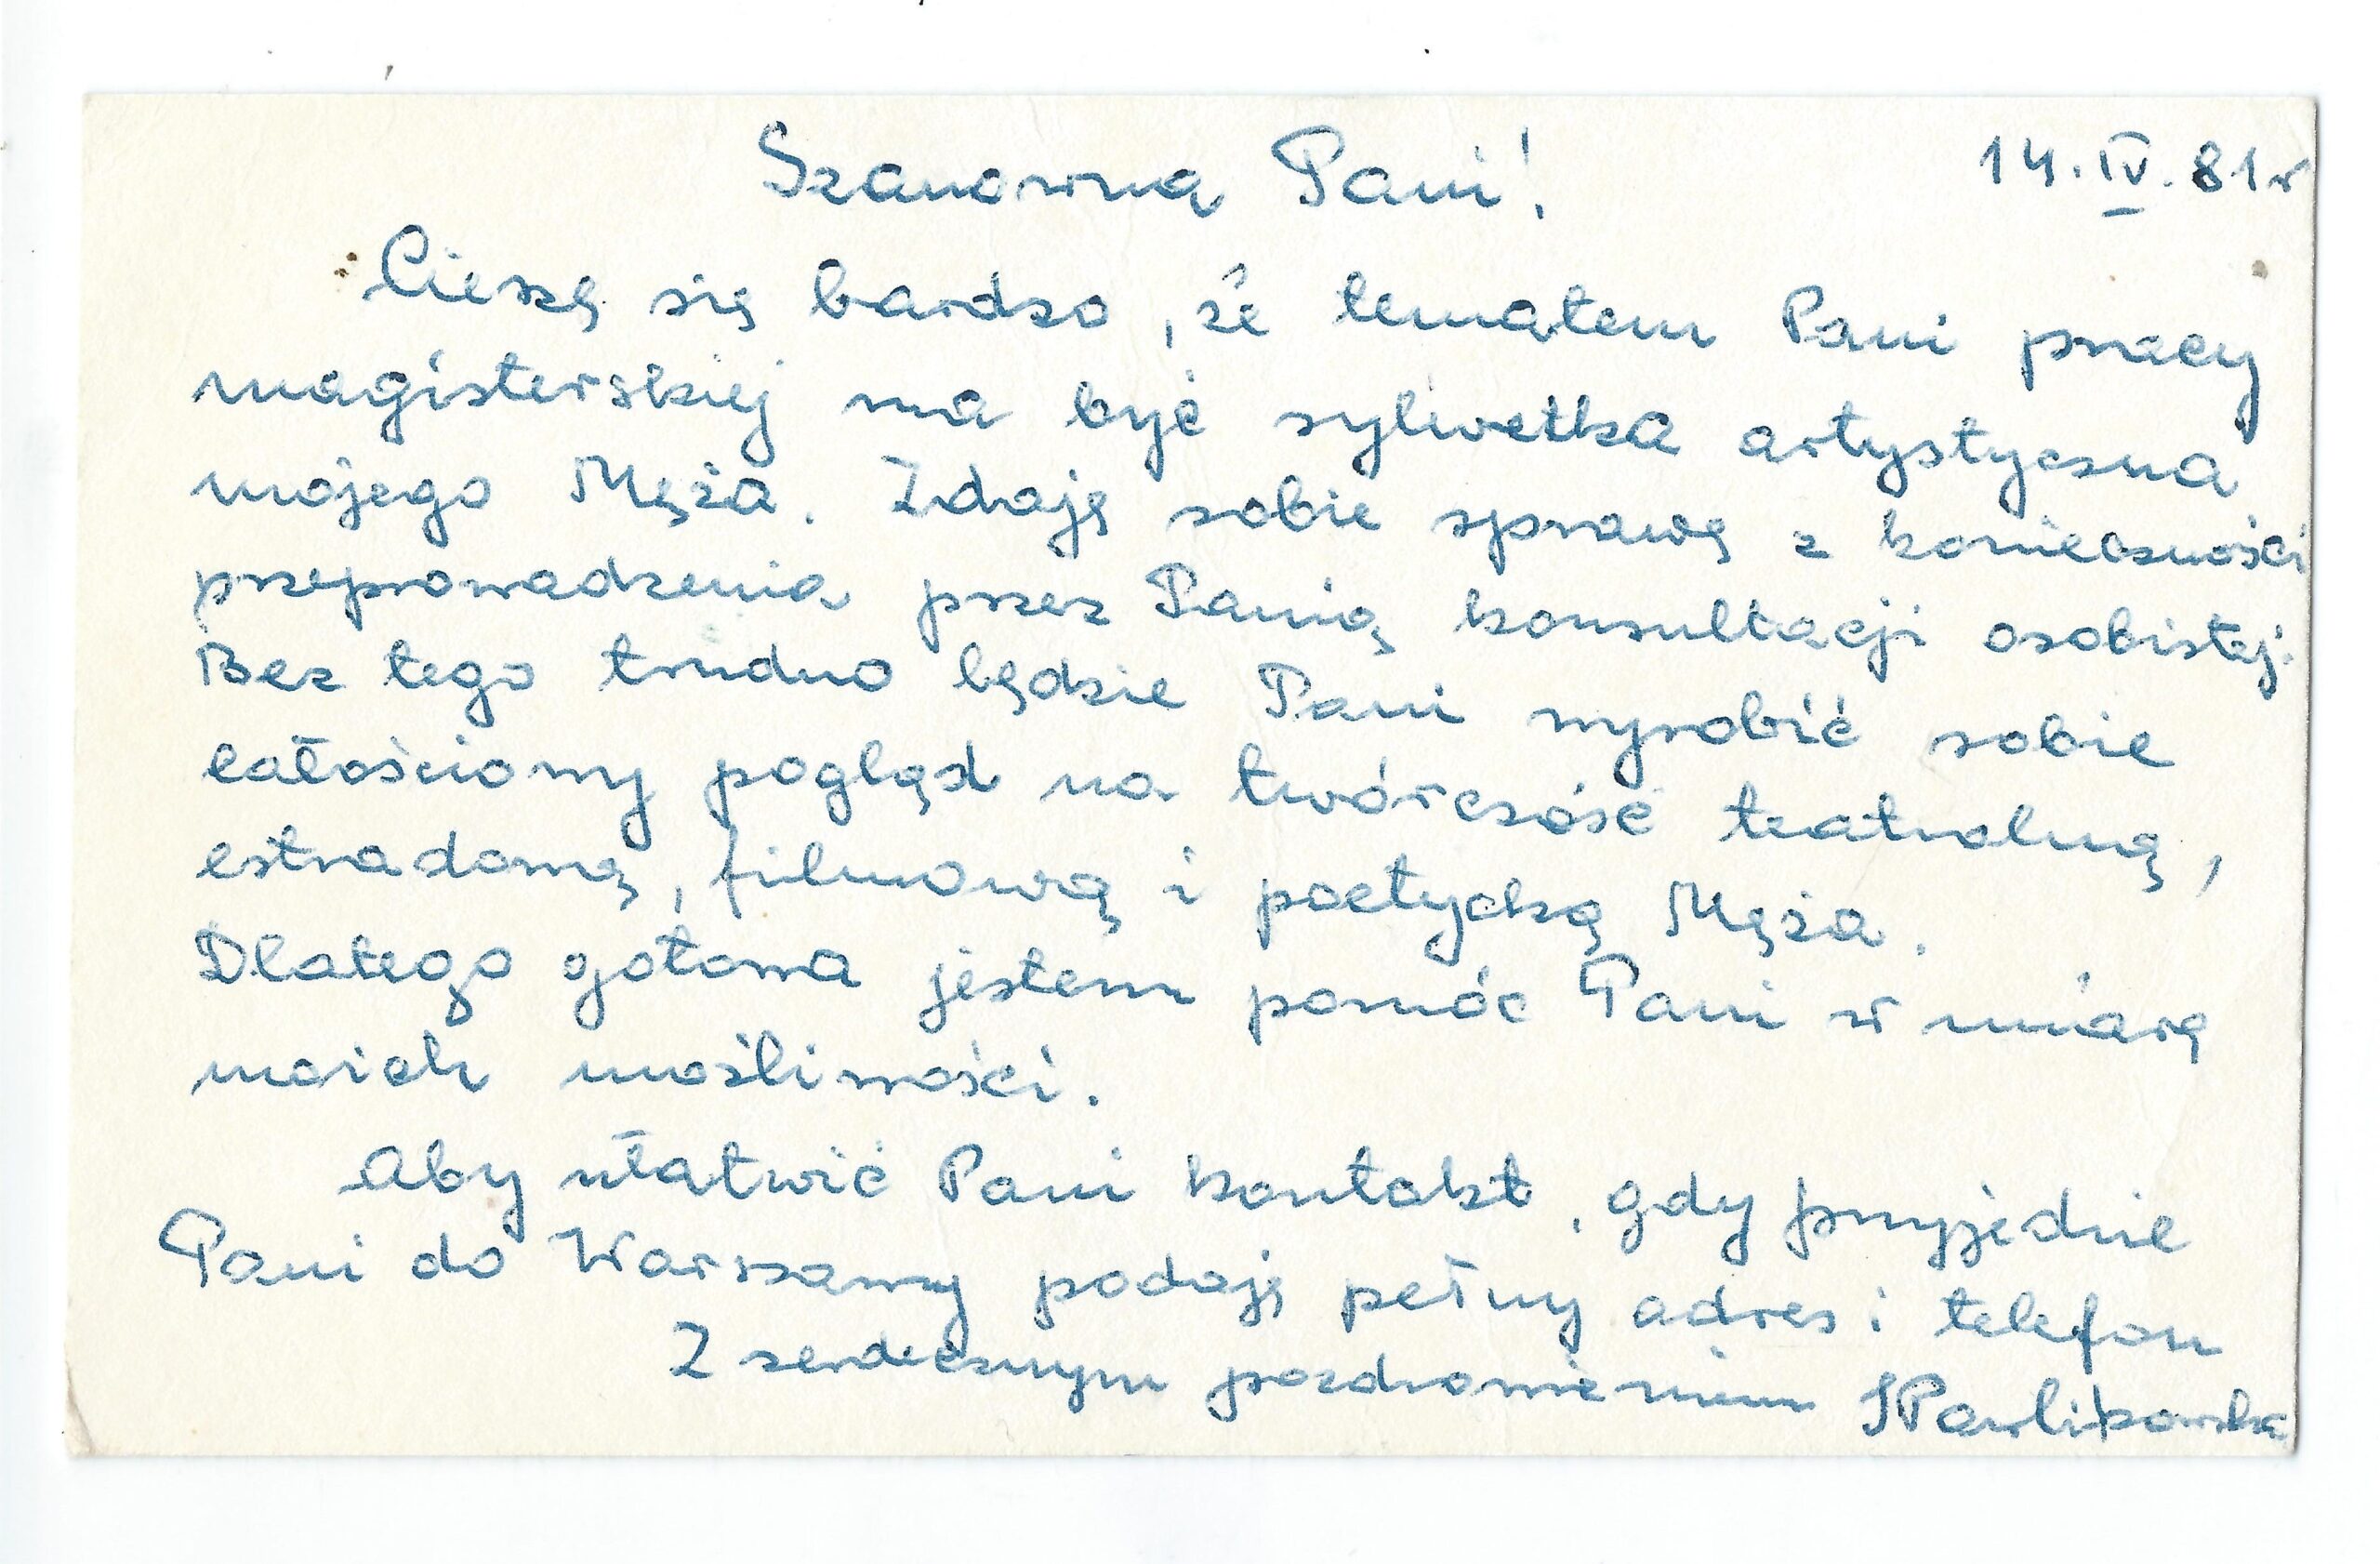 14.IV.81r
Szanowna Pani!
Cieszę się bardzo, że tematem Pani pracy
magisterskiej ma być sylwetka artystyczna
mojego Męża. Zdaję sobie sprawę z konieczności
przeprowadzenia przez Panią konsultacji osobistej.
Bez tego trudno będzie Pani wyrobić sobie
całościowy pogląd na twórczość teatralną,
estradową, filmową i poetycką Męża.
Dlatego gotowa jestem pomóc Pani w miarę
moich możliwości.
Aby ułatwić Pani kontakt, gdy przyjedzie
Pani do Warszawy podaję pełny adres i telefon
Z serdecznym pozdrowieniem JPawlikowska